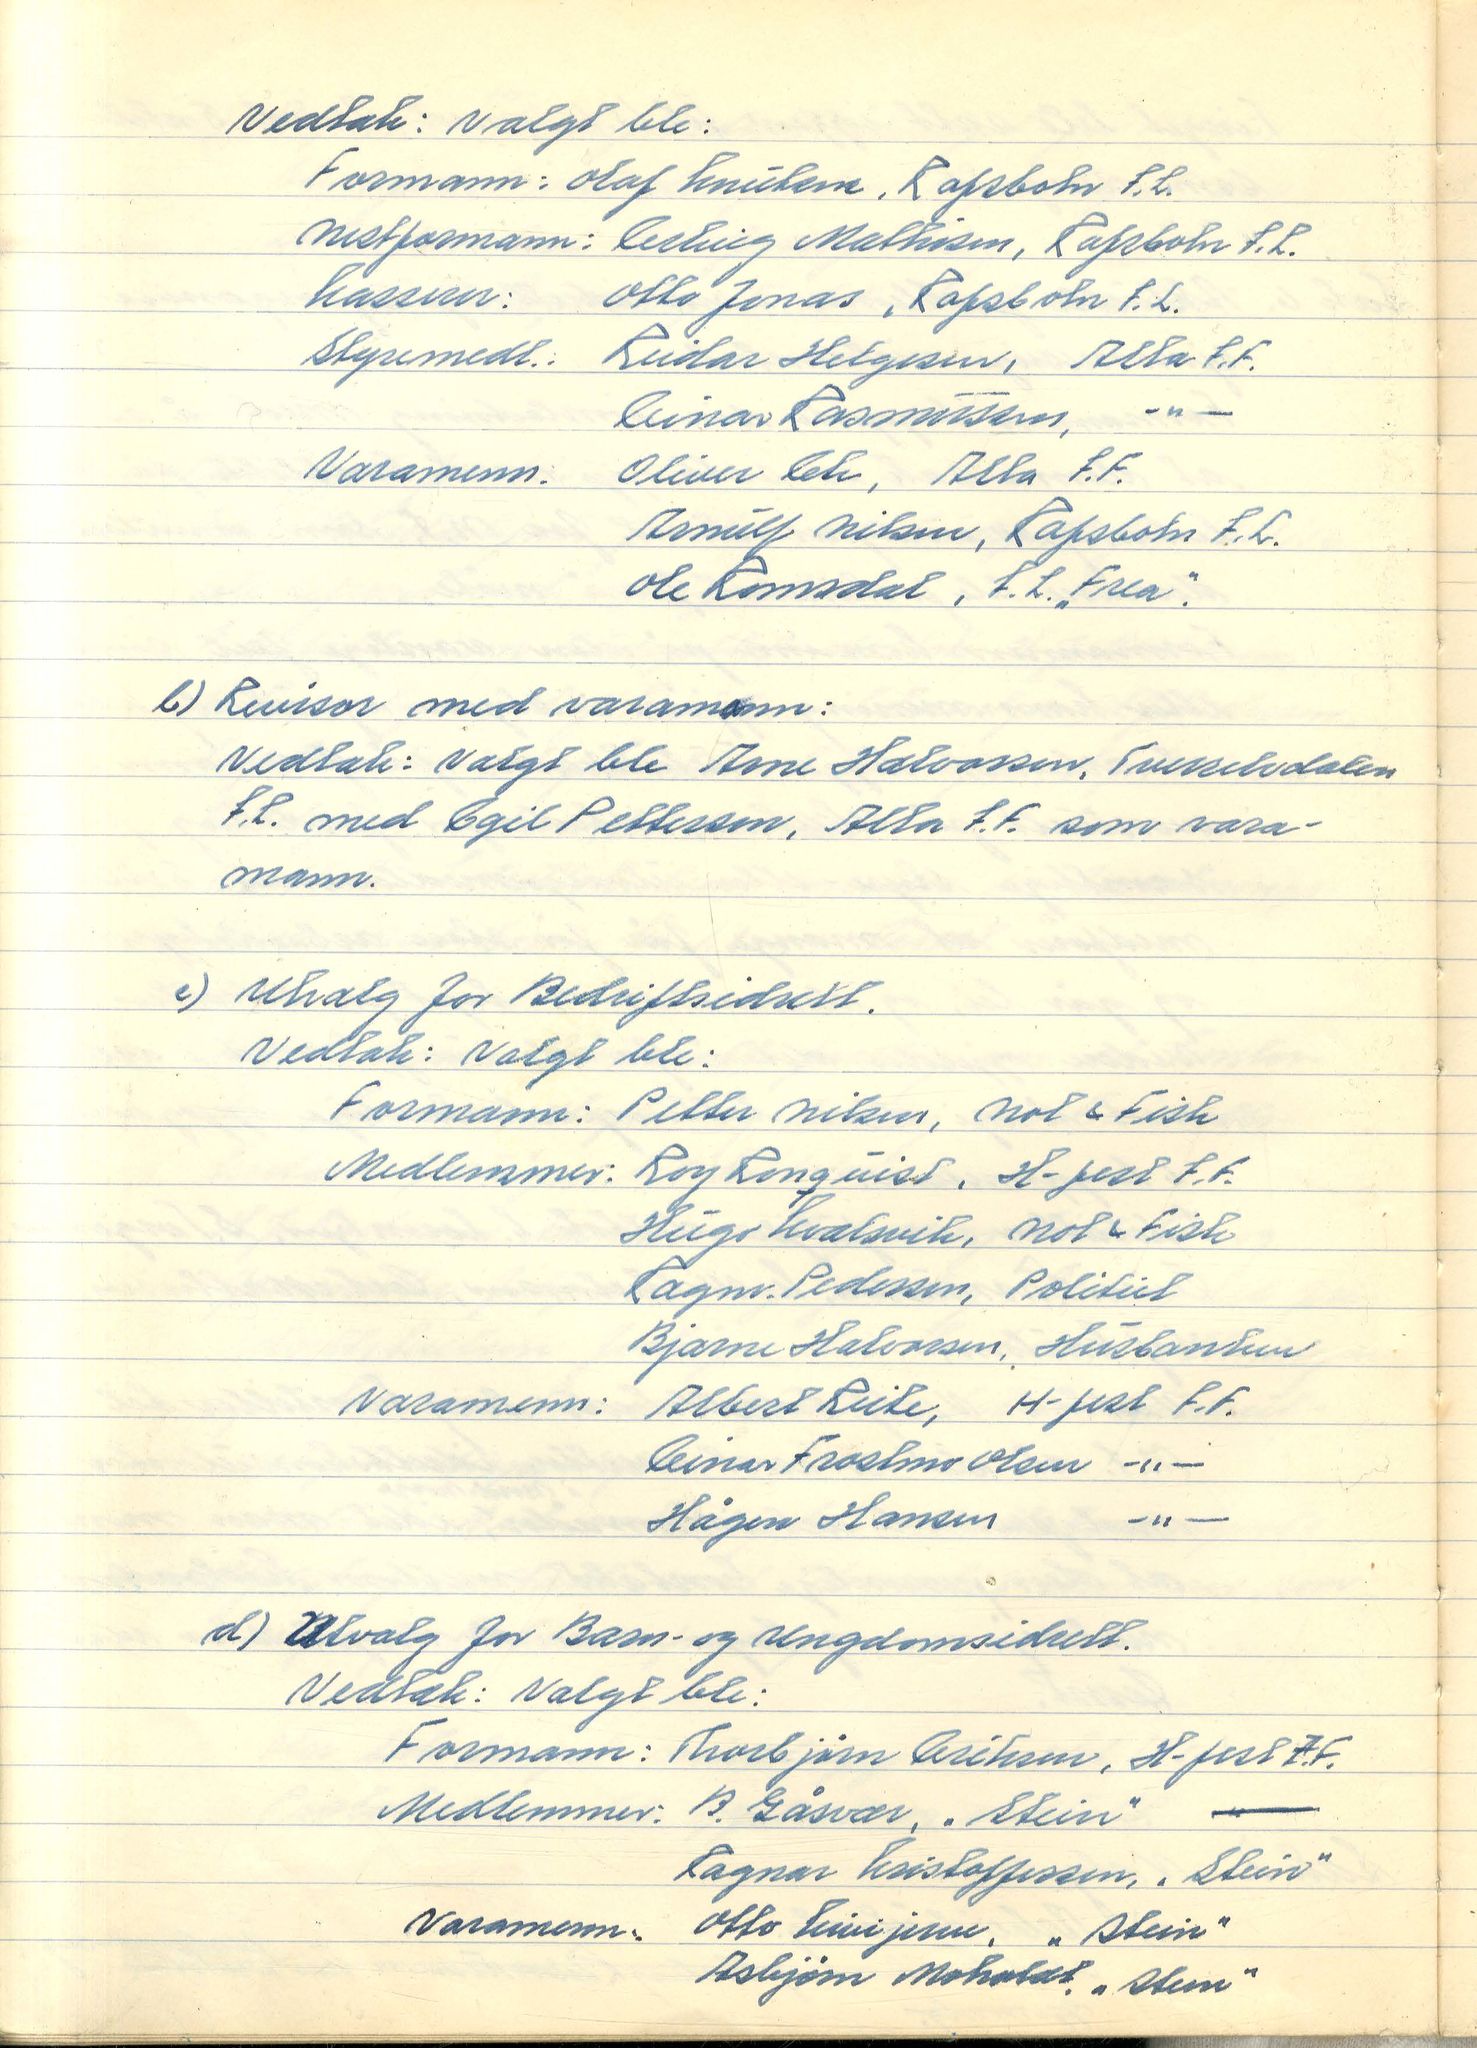 Vedtak: Valgt ble:
Formann: Olaf Knutsen, Rafsbotn I.L.
Nestformann: Erling Mathisen, Rafsbotn I.L.
Kasserer: Otto Jonas, Rafsbotn I.L.
Styremedl.: Reidar Helgesen, Alta I.F.
Einar Rasmussen, -"-
Varamenn: Oliver Eek, Alta I.F.
Arnulf Nilsen, Rafsbotn I.L.
Ole Romsdal, I.L. „Frea".
b) Revisor med varamann:
Vedtak: Valgt ble Arne Halvorsen, Tverrelvdalen
I.L. med Egil Pettersen, Alta I.F. som vara-
mann.
c) Utvalg for Bedriftsidrett.
Vedtak: Valgt ble:
Formann: Petter Nilsen, Not & Fisk
Medlemmer: Roy Ronquist, H-fest I.F.
Hugo Kvalsvik, Not & Fisk
Ragnv. Pedersen, Politiet
Bjarne Halvorsen, Husbanken
Varamenn: Albert Reite, H-fest I.F.
Einar Frostmo Olsen -"-
Hågen Hansen -"-
d) Utvalg for Barn- og Ungdomsidrett.
Vedtak: Valgt ble:
Formann: Thorbjørn Eriksen, H-fest I.F.
Medlemmer: B. Gåsvær, „Stein"
Ragnar Kristoffersen, „Stein"
Varamenn: Otto „Stein"
Asbjørn Moholdt, „Stein"